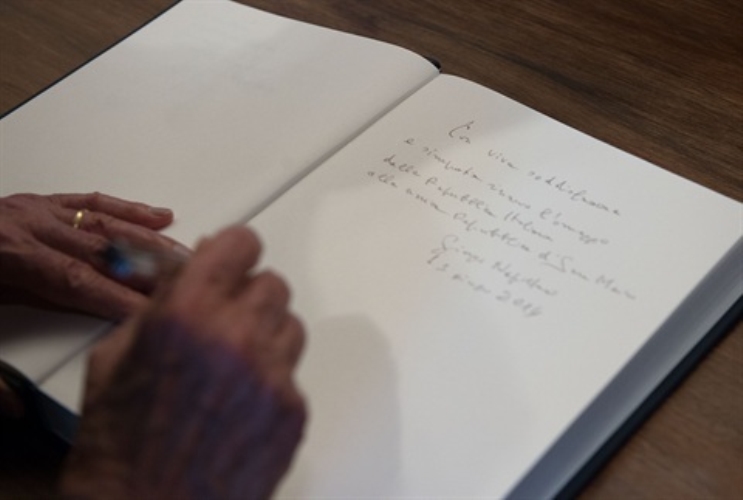 Con viva soddisfazione
e simpatia rinnovo l'omaggio
della Repubblica Italiana
alla amica Repubblica di San Marino
Giorgio Napolitano
giugno 2014